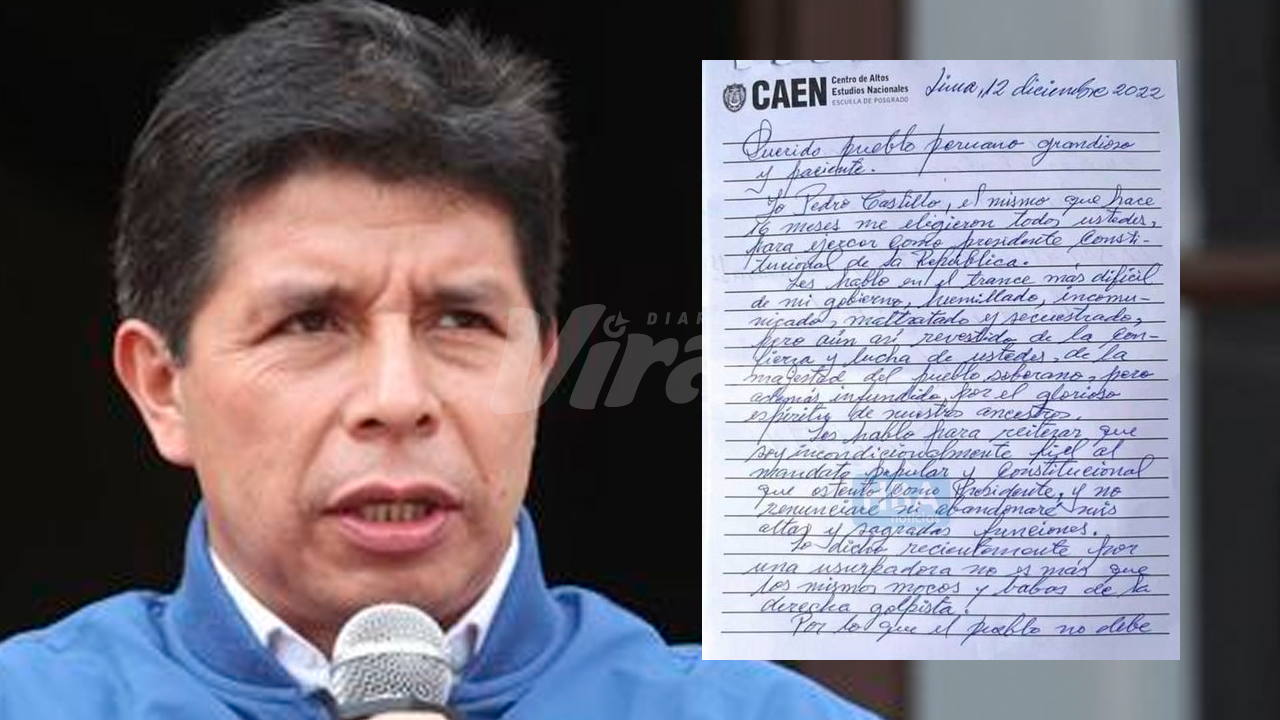 DIAR
Vira
CAEN
Centro de Altos
Estudios Nacionales
ESCUELA DE POSGRADO
Lima, 12 diciembre 2022
Querido pueblo peruano grandioso
y paciente.
Yo Pedro Castillo, el mismo que hace
16 meses me eligieron todos ustedes,
para ejercer como presidente Consti-
tucional de la República.
Les hablo en el trance más difícil
de mi gobierno, humillado, incomu-
nicado, maltratado y secuestrado,
pero aún así revestido de la con-
fianza y lucha de ustedes, de la
majestad del pueblo soberano, pero
además infundido por el glorioso
espíritu de nuestro ancestros.
Les hablo para reiterar que
soy incondicionalmente fiel al
mandato popular y Constitucional
que ostento como Presidente, y no
renunciaré ni abandonaré mis
altas y sagradas funciones.
Lo dicho recientemente por
una usurpadora no es más que
los mismos mocos y babas de la
derecha golpista.
Por lo que el pueblo no debe
noticias